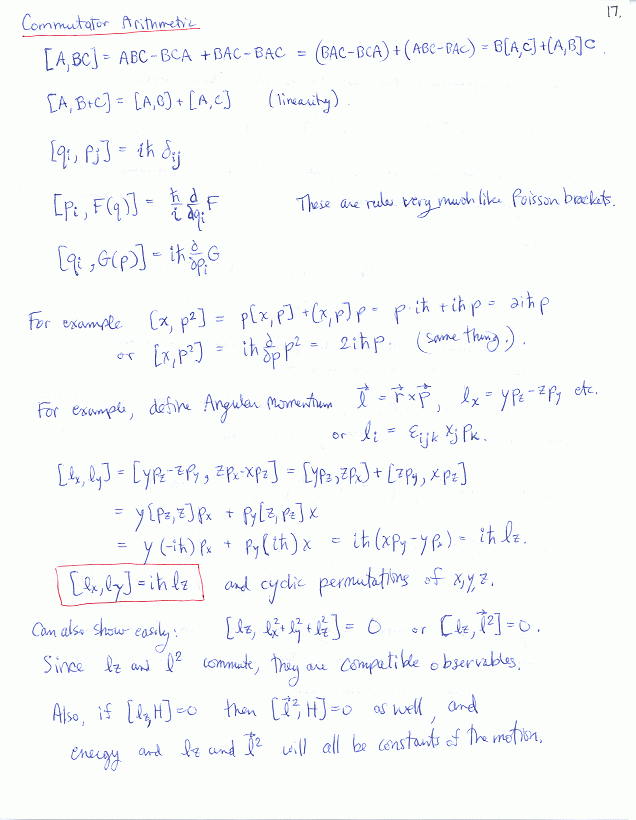 17.
Commutator Arithmetic
[A,BC] = ABC-BCA +BAC-BAC = (BAC-BCA)+(ABC-BAC) = B[A,C]+[A,B]C.
[A,B+C] = [A,B]+[A,C] (linearity).
[qi, pj] = iħ δij
[pi, F(q)] = ħ/i d/dqi F These are rules very much like Poisson brackets.
[qi, G(p)] = iħ ∂/∂pi G
For example [x, p²] = p[x,p]+[x,p]p = p·iħ + iħp = 2iħp
or [x,p²] = iħ ∂/∂p p² = 2iħp. (same thing.).
For example, define Angular Momentum l⃗ = r⃗ × p⃗, lx = ypz-zpy etc.
or li = εijk xj pk.
[lx,ly] = [ypz-zpy, zpx-xpz] = [ypz,zpx]+[zpy, xpz]
= y[pz,z]px + py[z,pz]x
= y(-iħ)px + py(iħ)x = iħ(xpy-ypx) = iħ lz.
[lx,ly] = iħ lz and cyclic permutations of x,y,z.
Can also show easily: [lz, lx²+ly²+lz²] = 0 or [lz, l⃗²] = 0.
Since lz and l² commute, they are compatible observables.
Also, if [lz,H]=0 then [l⃗²,H]=0 as well, and
energy and lz and l⃗² will all be constants of the motion.